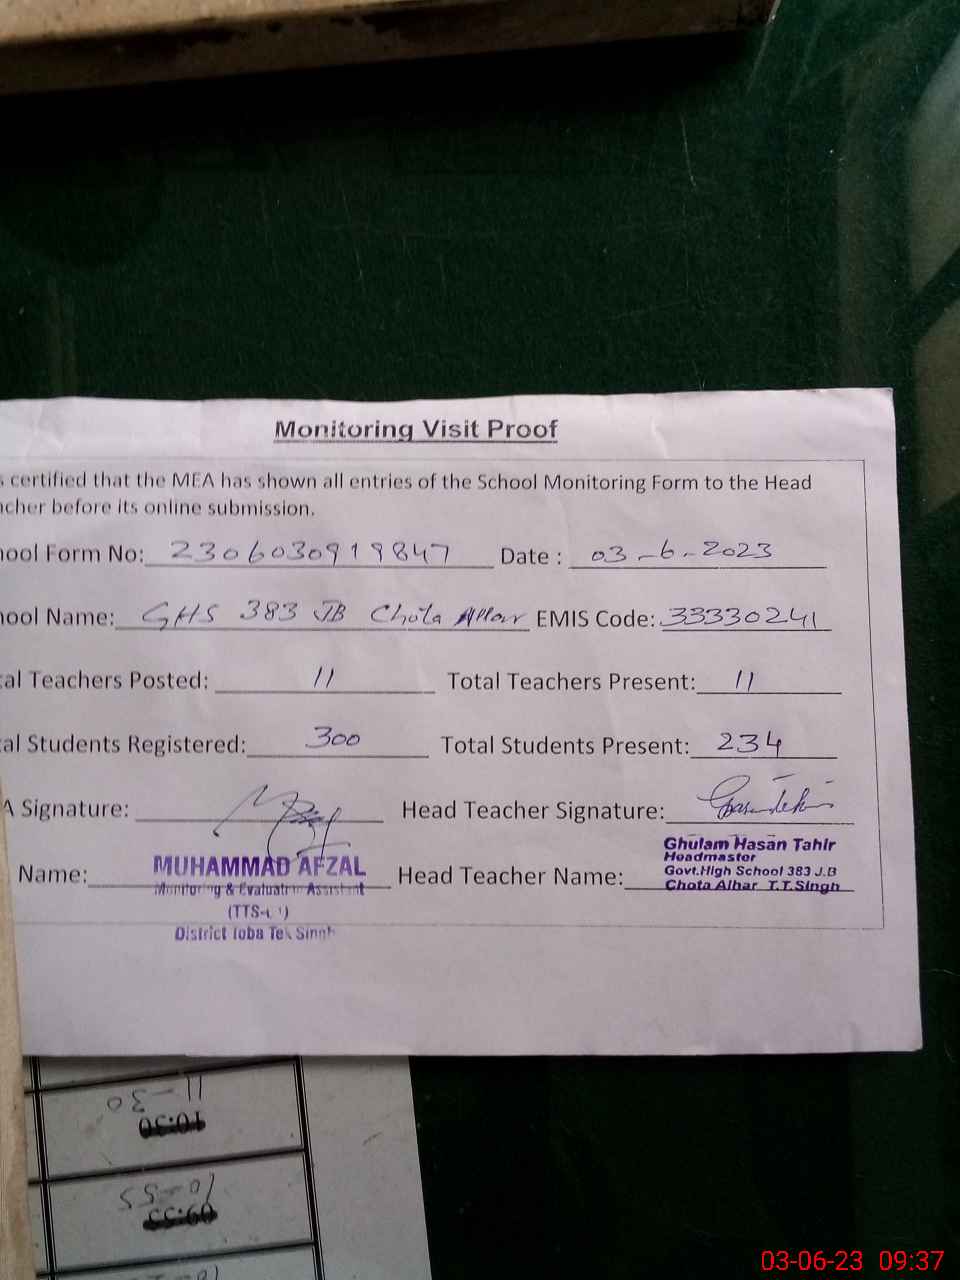 Monitoring Visit Proof
certified that the MEA has shown all entries of the School Monitoring Form to the Head
cher before its online submission.
hool Form No: 2306030919847 Date : 03-6-2023
hool Name: GHS 383 JB Chota Alhar EMIS Code: 33330241
al Teachers Posted: 11 Total Teachers Present: 11
al Students Registered: 300 Total Students Present: 234
A Signature: Head Teacher Signature:
Name: MUHAMMAD AFZAL Head Teacher Name: Ghulam Hasan Tahir
Monitoring & Evaluation Assistant Headmaster
District Toba Tek Singh Govt.High School 383 J.B
Chota Alhar T.T.Singh
11-30
10:30
10-55
09:55
03-06-23 09:37